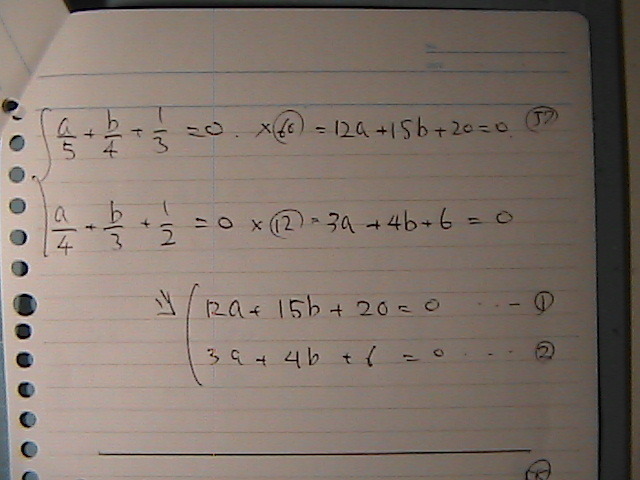 a/5 + b/4 + 1/3 = 0. ×60 = 12a+15b+20=0.
a/4 + b/3 + 1/2 = 0 ×12 = 3a+4b+6=0
12a+15b+20=0 ...①
3a+4b+6=0 ...②